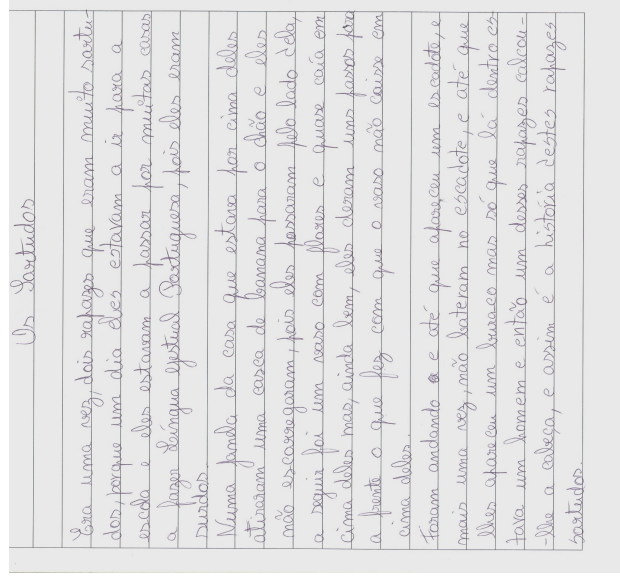 Os Sartudos
Era uma vez, dois rapazes que eram muito sartu-
dos, porque um dia eles estavam a ir para a
escola e eles estavam a passar por muitas casas
a fazer Língua gestual Portuguesa, pois eles eram
surdos.
Numa janela da casa que estava por cima deles
atiraram uma casca de banana para o chão e eles
não escorregaram, pois eles passaram pelo lado dela,
a seguir foi um vaso com flores e quase caía em
cima deles mas, ainda bem, eles deram uns passos para
a frente o que fez com que o vaso não caisse em
cima deles.
Foram andando e até que apareceu um escadote, e
mais uma vez, não bateram no escadote, e até que
lhes apareceu um buraco mas só que lá dentro es
tava um homem e então um desses rapazes calcou-
-lhe a cabeça, e assim é a história destes rapazes
sartudos.